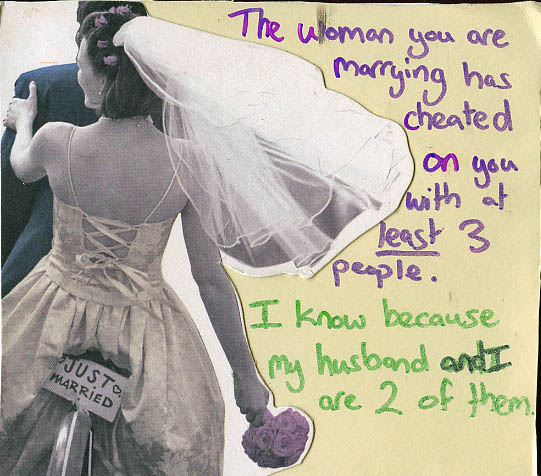 The woman you are
marrying has
cheated
on you
with at
least 3
people.
I know because
my husband and I
are 2 of them.
JUST
MARRIED